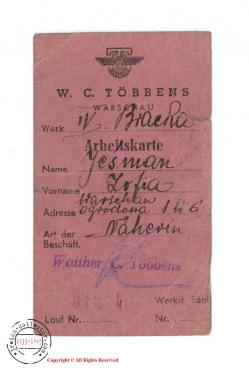 W. C. TÖBBENS
WARSCHAU
Werk W. Bracka
Arbeitskarte
Name Jesman
Vorname Zofia
Warschau
Adresse Ogrodowa
Art der
Beschäft. Näherin
Walther C. Többens
Werkit Saal
Lauf Nr. Nr.
Copyright © All Rights Reserved